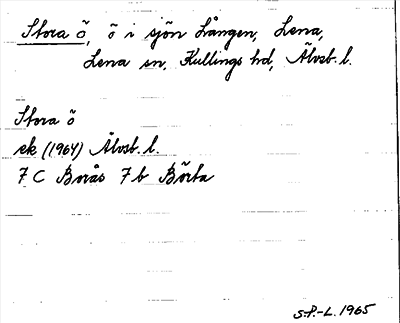 Stora ö, ö i sjön Lången, Lena,
Lena sn, Kullings hd, Älvsb. l.
Stora ö
ek (1964) Älvsb. l.
7 C Borås 7 b Börta
S.P.-L. 1965